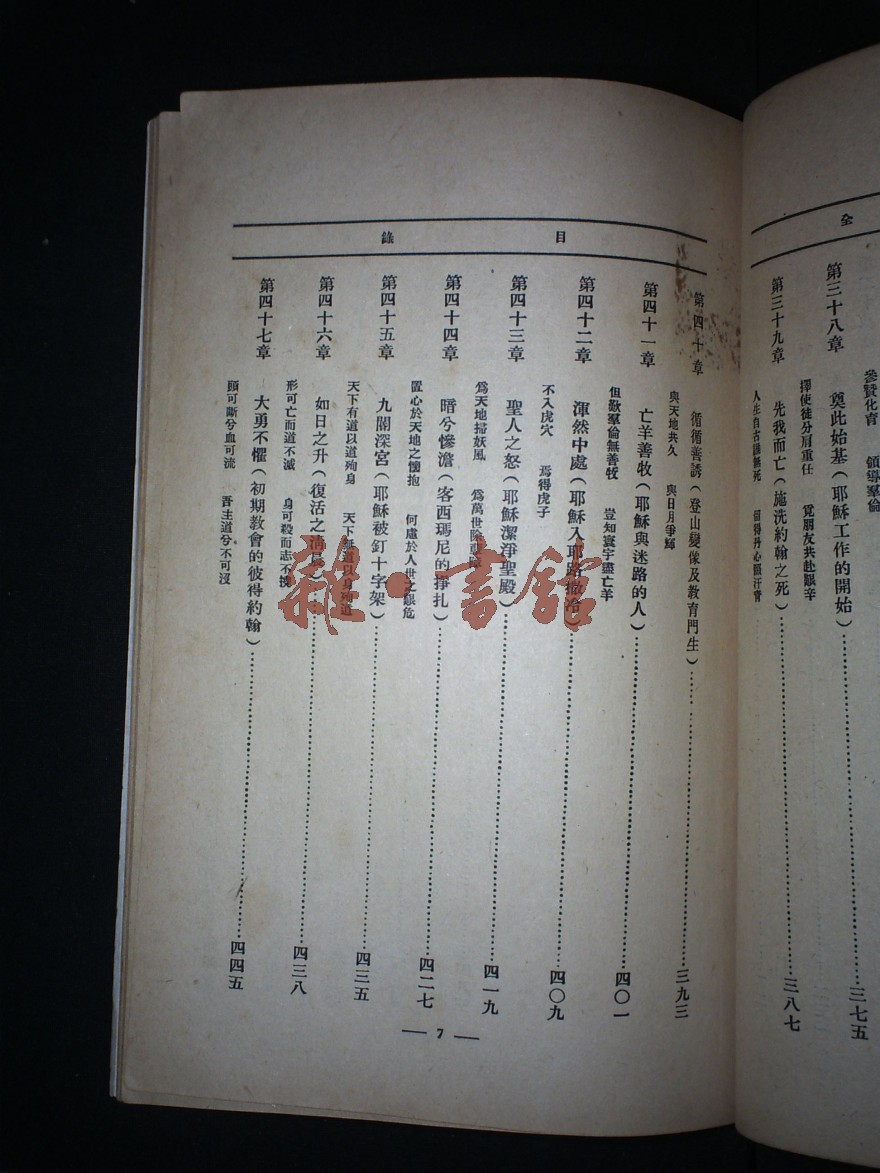 全
參贊化育　領導羣倫
第三十八章　奠此始基（耶穌工作的開始）……三七五
擇使徒分肩重任　覓朋友共赴艱辛
第三十九章　先我而亡（施洗約翰之死）……三八七
人生自古誰無死　留得丹心照汗青
目錄
第四十章　循循善誘（登山變像及教育門生）……三九三
與天地共久　與日月爭輝
第四十一章　亡羊善牧（耶穌與迷路的人）……四〇一
但歎羣倫無善牧　豈知寰宇盡亡羊
第四十二章　渾然中處（耶穌入耶路撒冷）……四〇九
不入虎穴　焉得虎子
第四十三章　聖人之怒（耶穌潔淨聖殿）……四一九
爲天地掃妖風　爲萬世除
第四十四章　暗兮慘澹（客西瑪尼的掙扎）……四二七
置心於天地之懷抱　何慮於人世之艱危
第四十五章　九闕深宮（耶穌被釘十字架）……四三五
天下有道以道殉身　天下無道以身殉道
第四十六章　如日之升（復活之清晨）……四三八
形可亡而道不滅　身可殺而志不
第四十七章　大勇不懼（初期教會的彼得約翰）……四四五
頭可斷兮血可流　吾主道兮不可沒
— 7 —
雜·書館